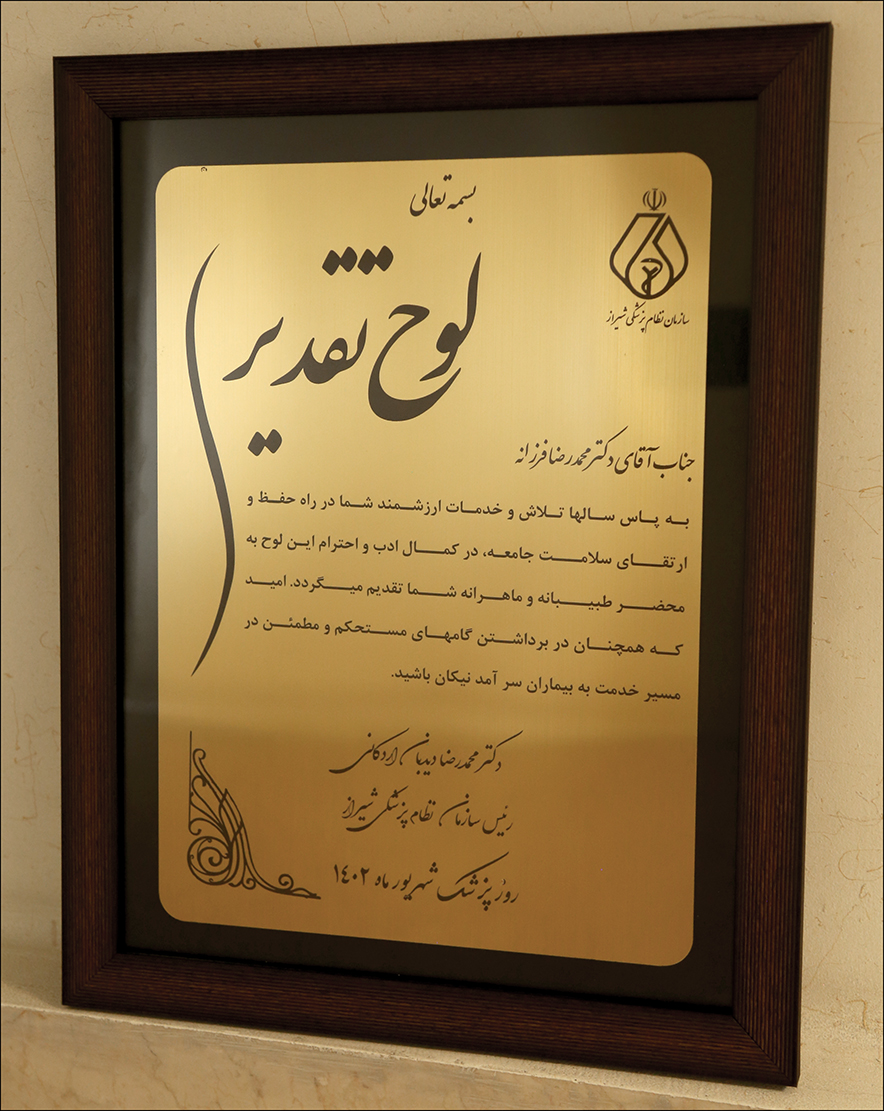 بسمه تعالی
سازمان نظام پزشکی شیراز
لوح تقدیر
جناب آقای دکتر محمدرضا فرزانه
به پاس سالها تلاش و خدمات ارزشمند شما در راه حفظ و
ارتقای سلامت جامعه، در کمال ادب و احترام این لوح به
محضر طبیبانه و ماهرانه شما تقدیم میگردد. امید
که همچنان در برداشتن گامهای مستحکم و مطمئن در
مسیر خدمت به بیماران سر آمد نیکان باشید.
دکتر محمدرضا دیدبان اردکانی
رئیس سازمان نظام پزشکی شیراز
روز پزشک شهریور ماه ۱۴۰۲